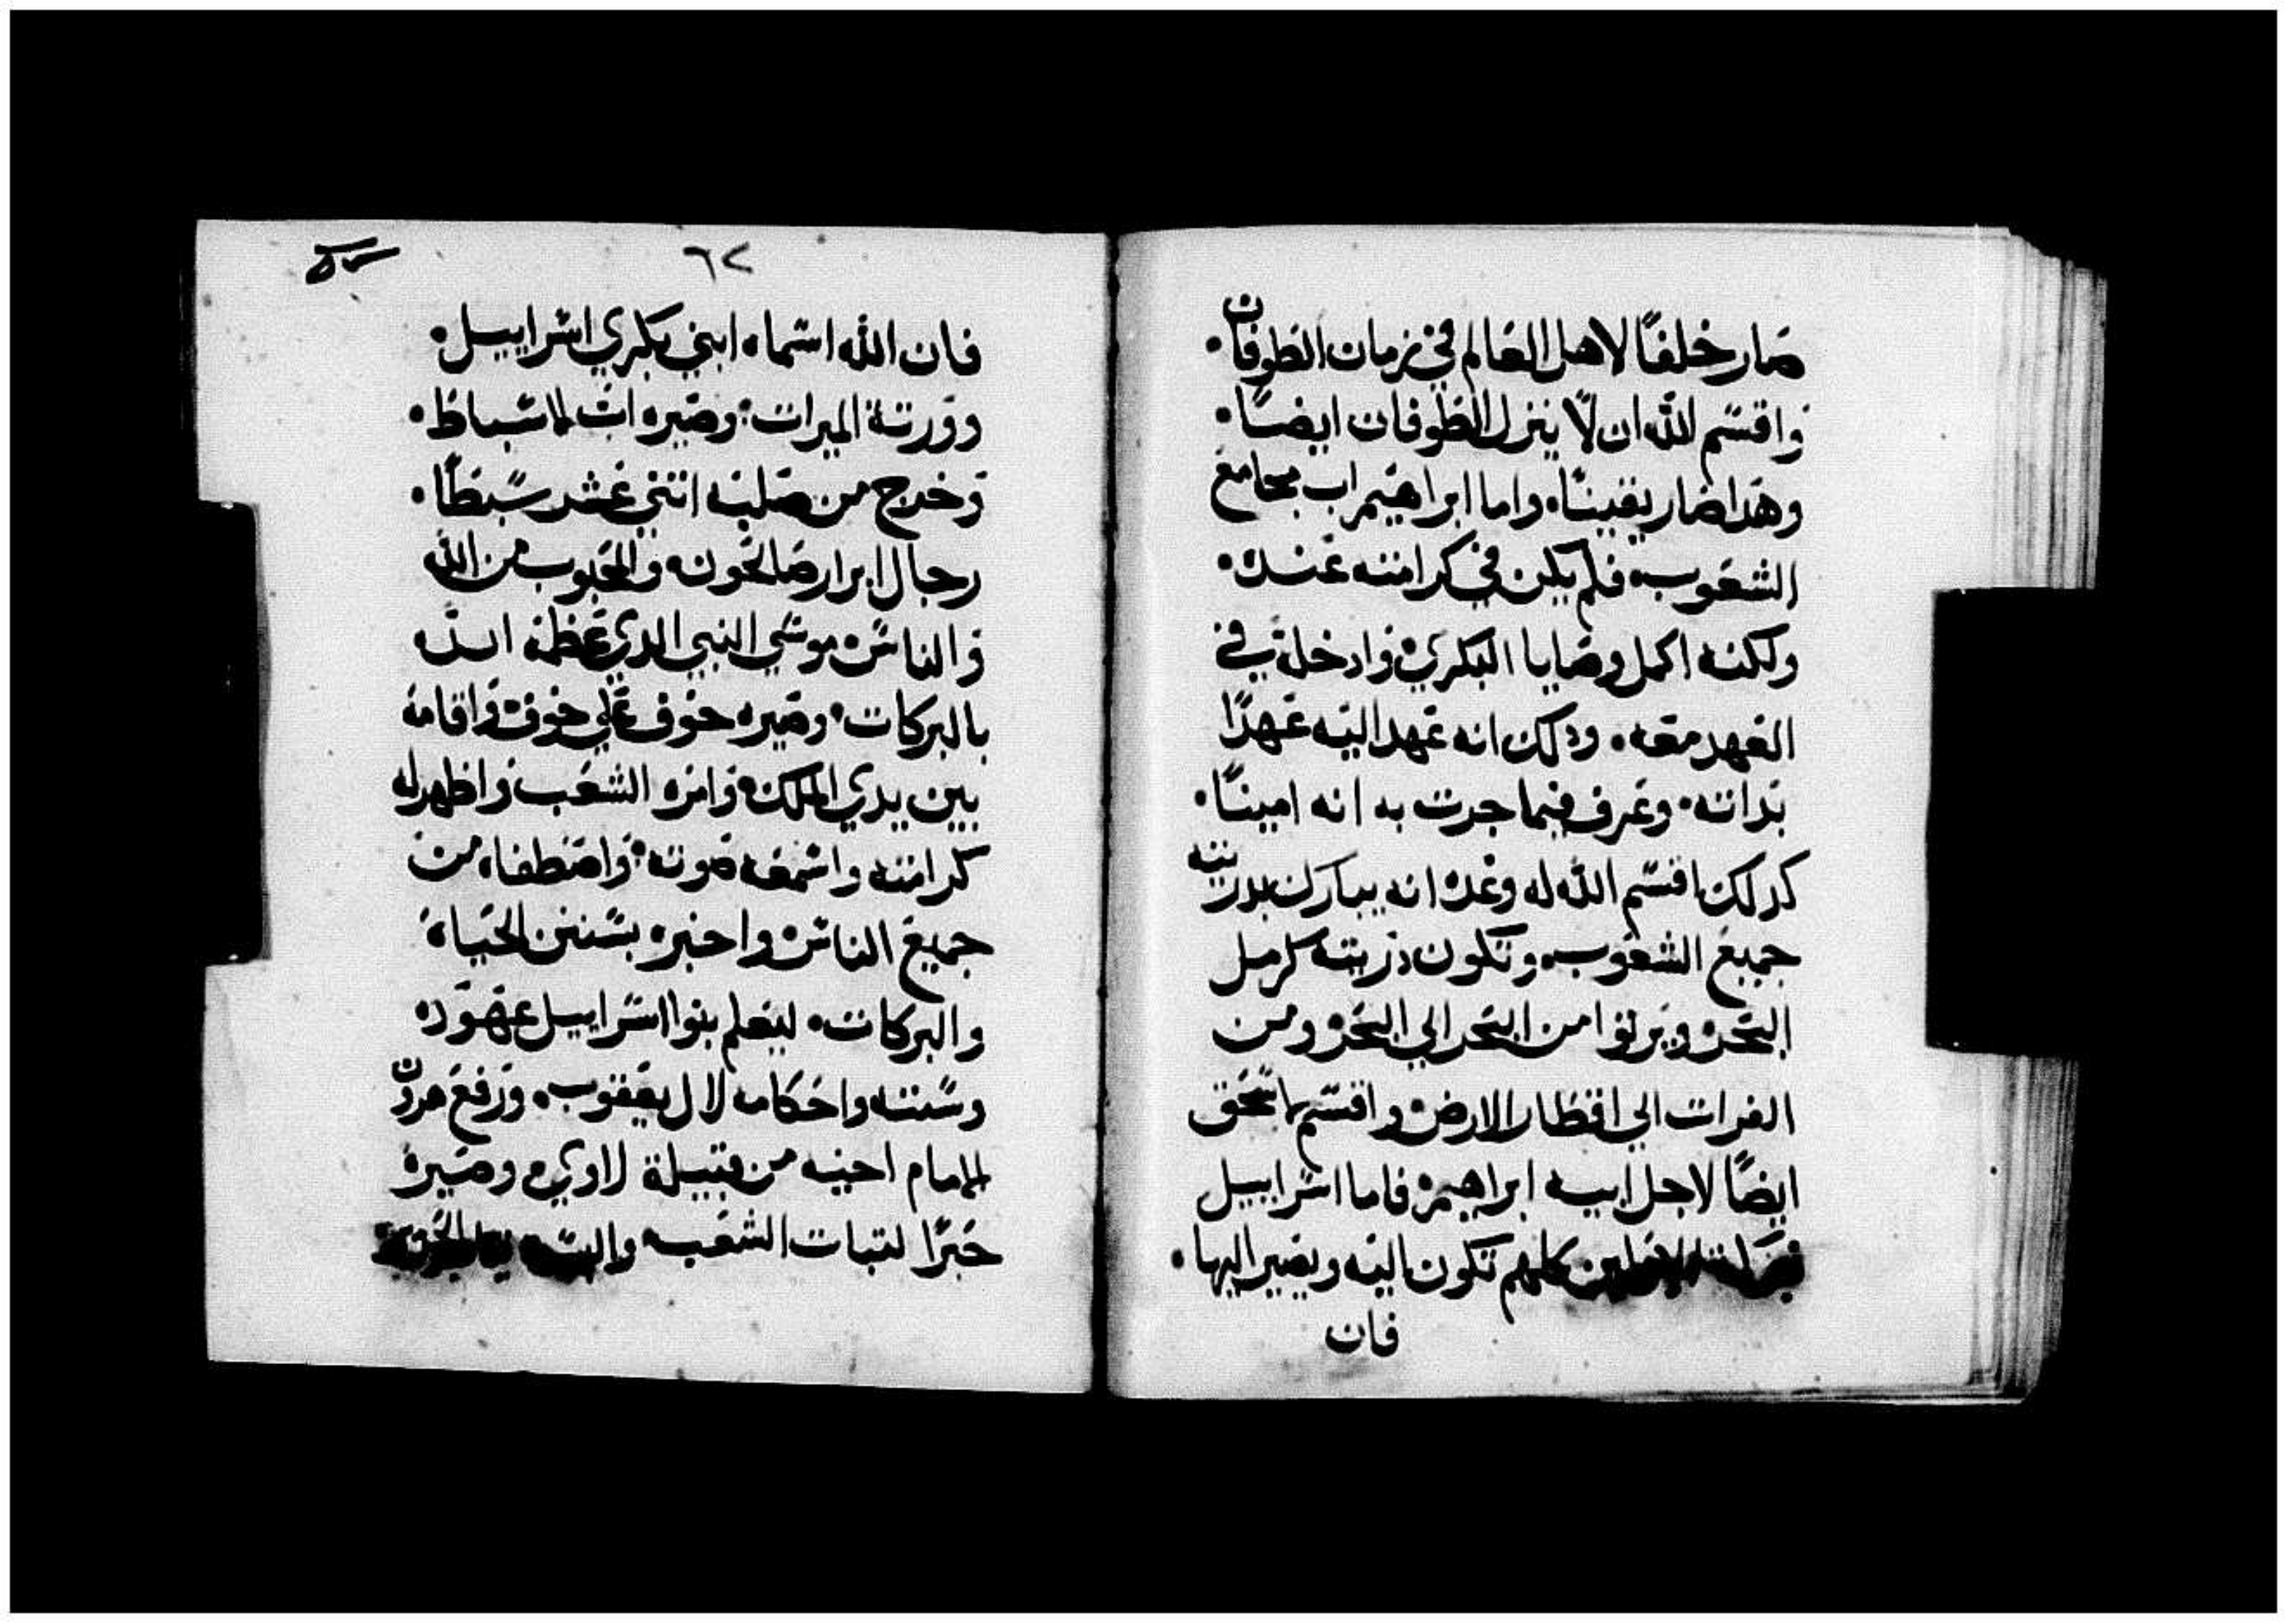 صار خلفًا لاهل العالم في زمان الطوفان.
واقسم الله ان لا ينزل الطوفان ايضًا.
وهدا صار يقينًا. واما ابراهيم اب مجامع
الشعوب. فلم يكن في كرامته عنده.
ولكنه اكمل وصايا البكري. وادخله في
العهد معه. ودلك انه عهد اليه عهدًا
بداته. وعرف فيما جرت به انه امينًا.
كدلك اقسم الله له وعده انه يبارك بدريته
جميع الشعوب. وتكون دريته كرمل
البحر. ويرثوا من البحر الي البحر. ومن
الفرات الي اقطار الارض. واقسم لاسحق
ايضًا لاجل ابيه ابراهيم. فاما اسراييل
كلهم تكون اليه ويصير اليها.
فان
٦٢
فان الله اسماه ابني بكري اسراييل.
وورثة الميرات. وصيره اب للاسباط.
وخرج من صلبه اتني عشر سبطًا.
رجال ابرار صالحون. والمحبوب من الله
والناس. موسي النبي الدي عظمه الله
بالبركات. وصيره خوف علي خوف. واقامه
بين يدي الملك. وامره الشعب. واظهر له
كرامته واسمعه صوته. واصطفاه من
جميع الناس. واخبره بسنن الحياة
والبركات. ليعلم بنوا اسراييل عهوده
وسننه واحكامه لال يعقوب. ورفع هرون
للامام اخيه من قبيلة لاوي. وصيره
حبرًا لتبات الشعب